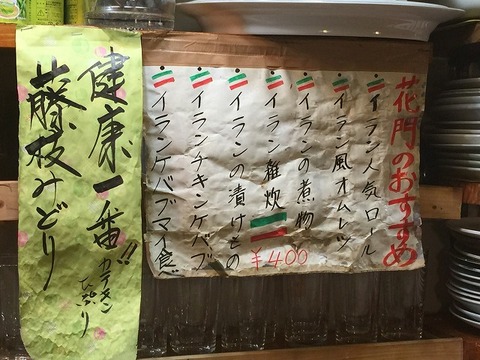 花門のおすすめ
イラン人気ロール
イラン風オムレツ
イランの煮物
イラン雑炊 ¥400
イランの漬けもの
イランチキンケバブ
イランケバブマイ食ベ
健康一番!!
カテキンたっぷり
藤枝みどり